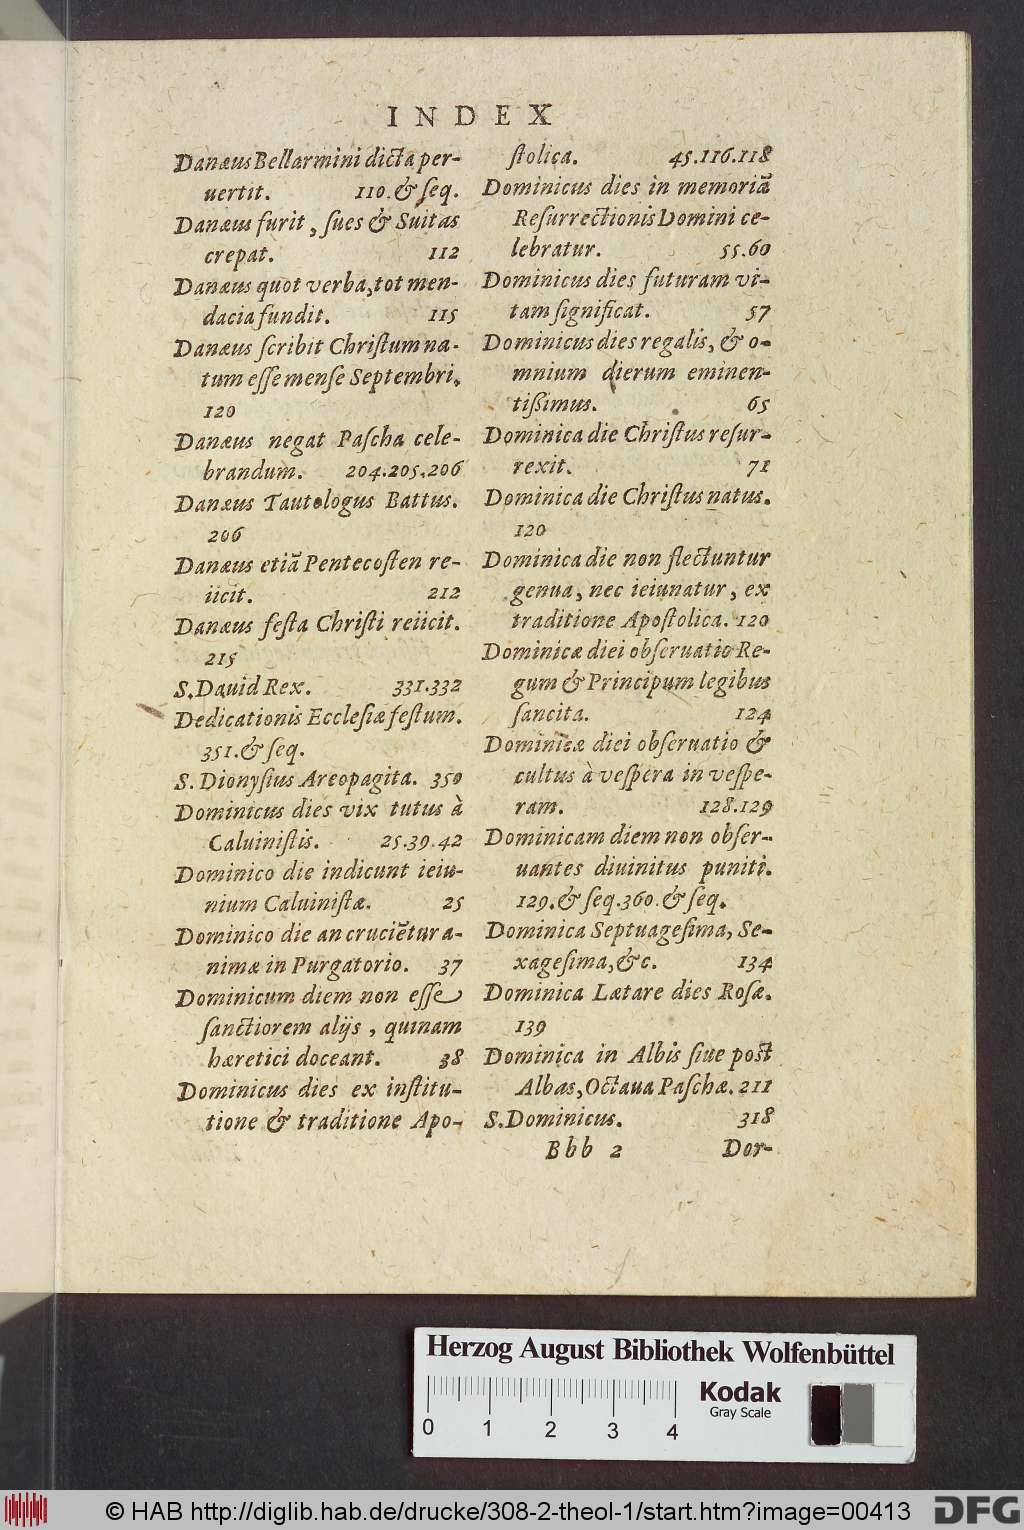 INDEX
Danæus Bellarmini dicta per-
uertit. 110. & ſeq.
Danæus furit, ſues & Suitas
crepat. 112
Danæus quot verba, tot men-
dacia fundit. 115
Danæus ſcribit Chriſtum na-
tum eſſe menſe Septembri.
120
Danæus negat Paſcha cele-
brandum. 204.205.206
Danæus Tautologus Battus.
206
Danæus etiā Pentecoſten re-
iicit. 212
Danæus feſta Chriſti reiicit.
215
S. Dauid Rex. 331.332
Dedicationis Eccleſiæ feſtum.
351. & ſeq.
S. Dionyſius Areopagita. 350
Dominicus dies vix tutus à
Caluiniſtis. 25.39.42
Dominico die indicunt ieiu-
nium Caluiniſtæ. 25
Dominico die an cruciētur a-
nimæ in Purgatorio. 37
Dominicum diem non eſſe
ſanctiorem alijs, quinam
hæretici doceant. 38
Dominicus dies ex inſtitu-
tione & traditione Apo-
ſtolica. 45.116.118
Dominicus dies in memoriā
Reſurrectionis Domini ce-
lebratur. 55.60
Dominicus dies futuram vi-
tam ſignificat. 57
Dominicus dies regalis, & o-
mnium dierum eminen-
tißimus. 65
Dominica die Chriſtus reſur-
rexit. 71
Dominica die Chriſtus natus.
120
Dominica die non flectuntur
genua, nec ieiunatur, ex
traditione Apoſtolica. 120
Dominicæ diei obſeruatio Re-
gum & Principum legibus
ſancita. 124
Dominicæ diei obſeruatio &
cultus à veſpera in veſpe-
ram. 128.129
Dominicam diem non obſer-
uantes diuinitus puniti.
129. & ſeq. 360. & ſeq.
Dominica Septuageſima, Se-
xageſima, &c. 134
Dominica Lætare dies Roſæ.
139
Dominica in Albis ſiue poſt
Albas, Octaua Paſchæ. 211
S. Dominicus. 318
Bbb 2 Dor-
Herzog August Bibliothek Wolfenbüttel
0 1 2 3 4
Kodak
Gray Scale
© HAB http://diglib.hab.de/drucke/308-2-theol-1/start.htm?image=00413
DFG